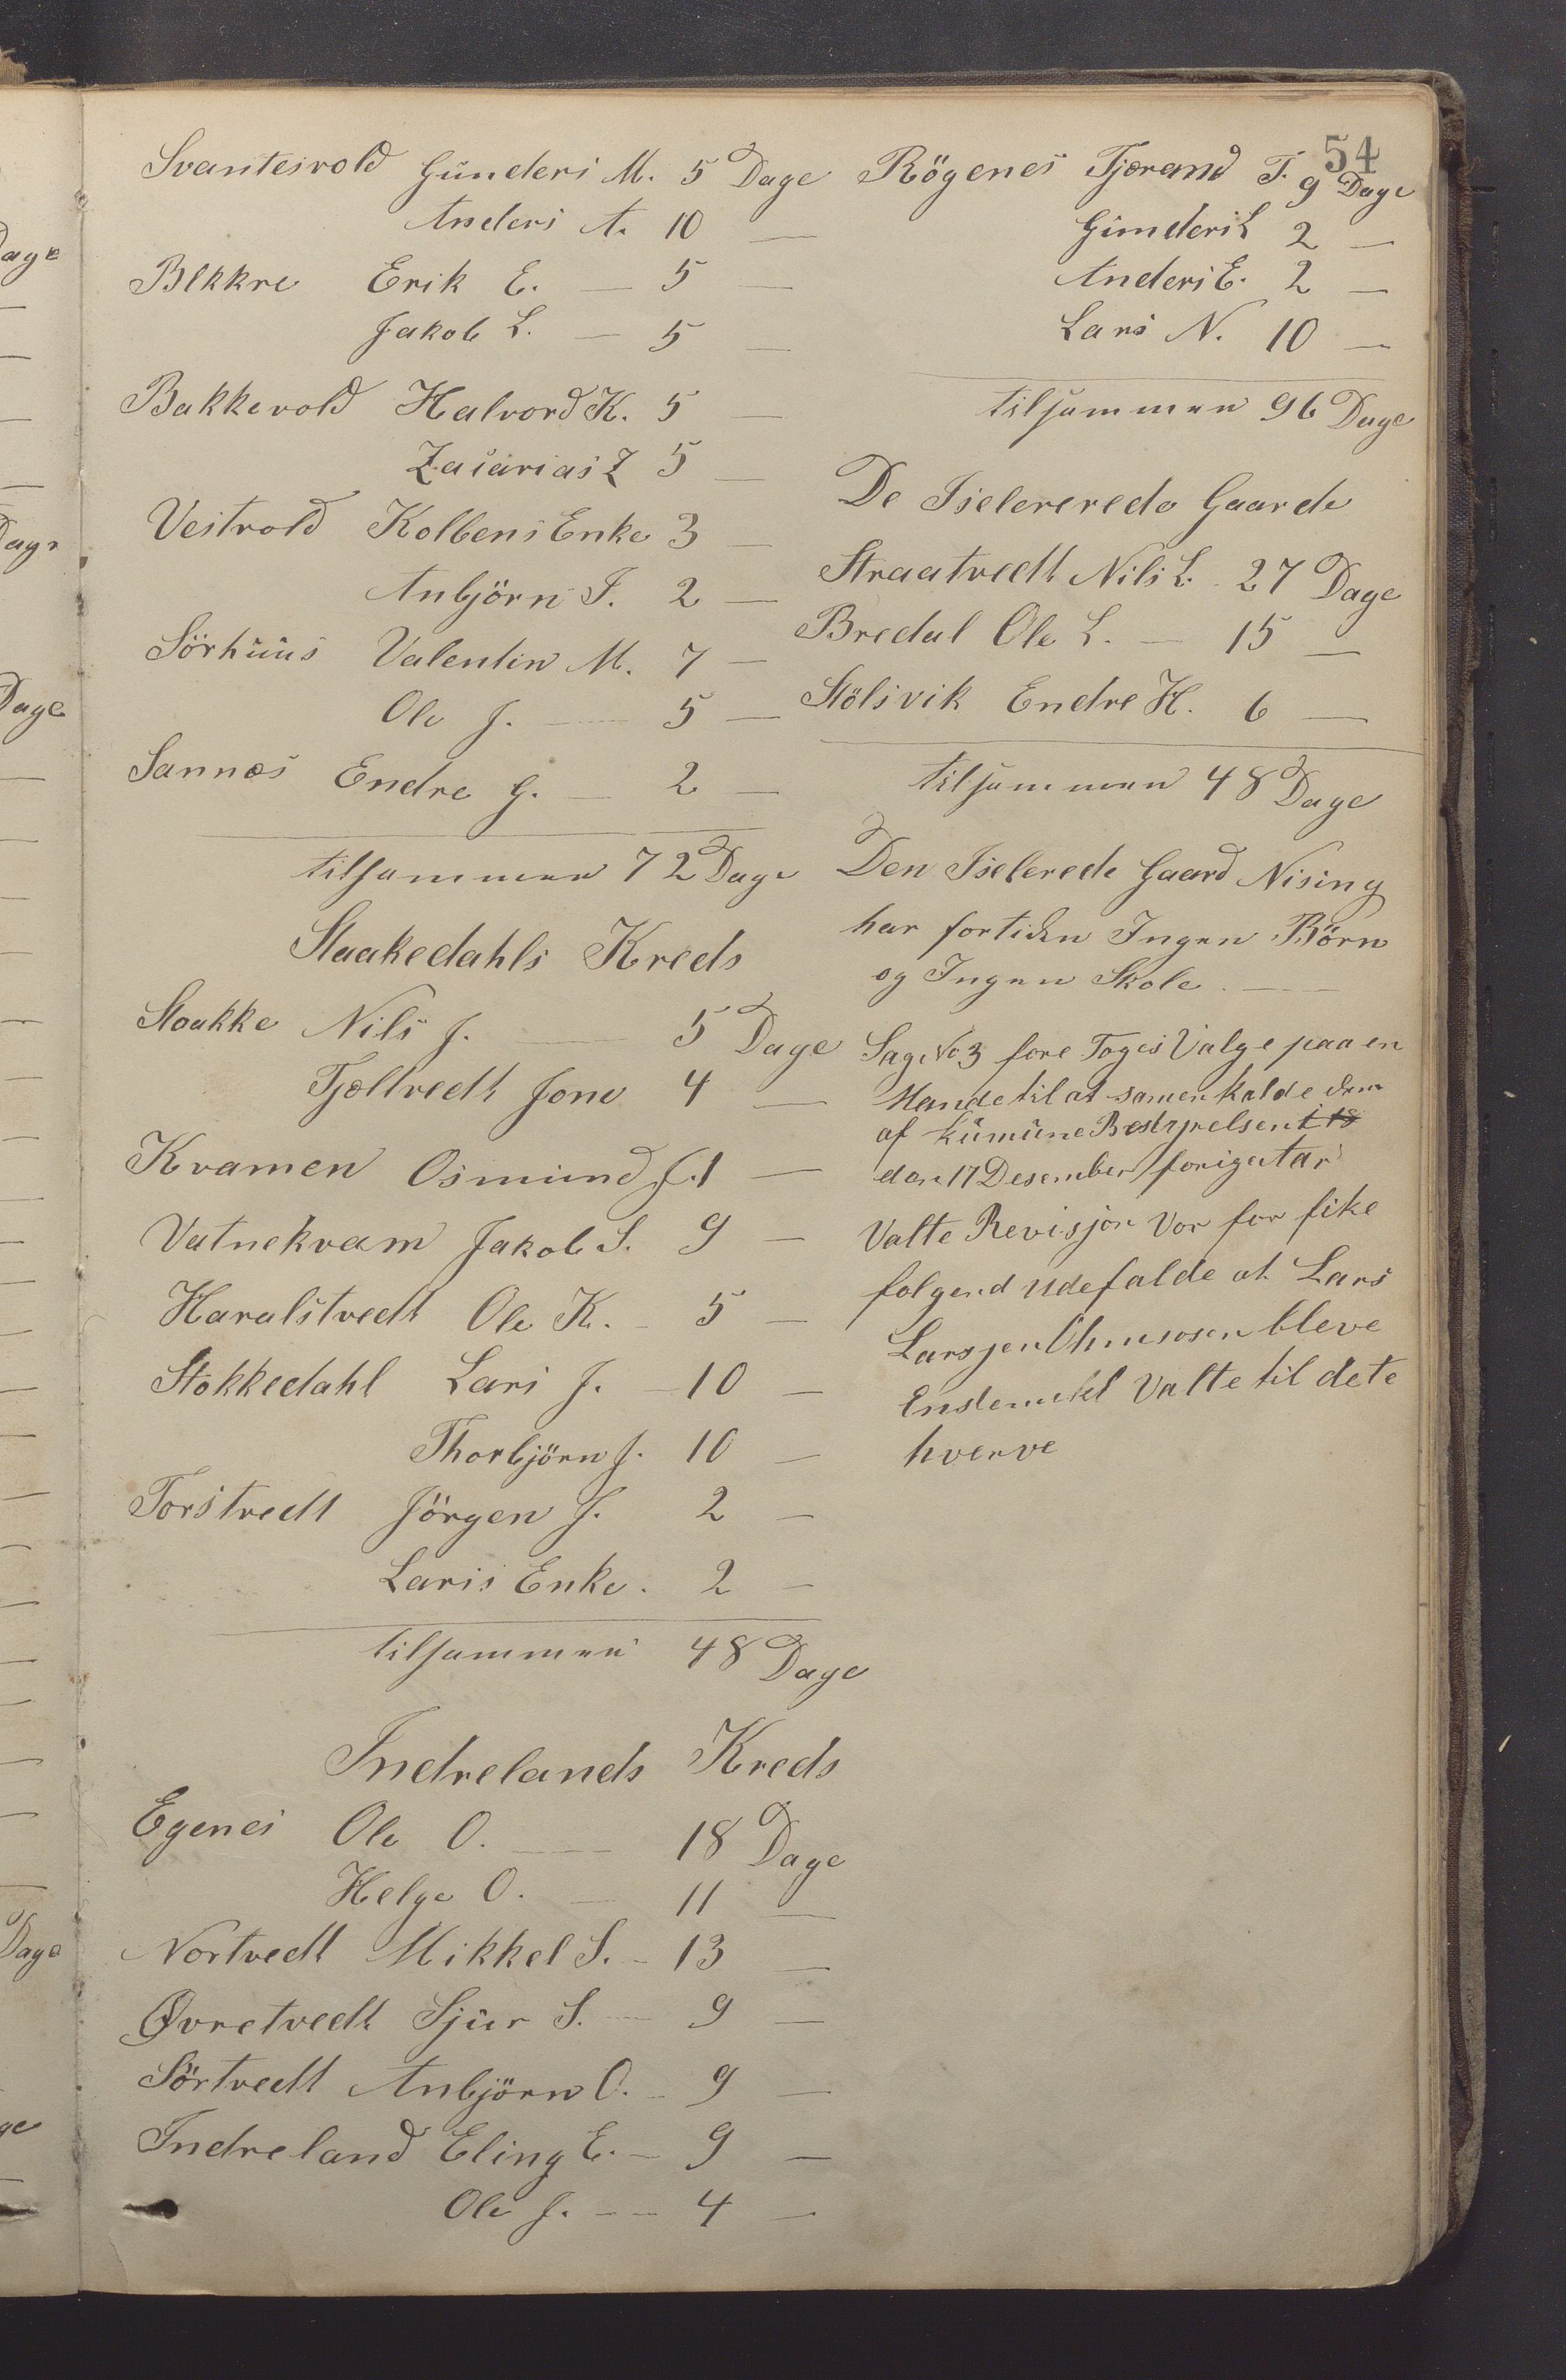 54
Svantesvold Gunders M. 5 Dage
Anders A. 10 —
Bekkre Erik E. — 5 —
Jakob L. — 5 —
Bakkevold Halvord K. 5 —
Zacarias Z 5 —
Vestvold Kolbens Enke 3 —
Anbjörn I. 2 —
Sörhuus Valentin M. 7 —
Ole J. — 5 —
Sannæs Endre G. — 2 —
tilsammen 72 Dage
Staakedahls Kreds
Stoakke Nils J. — 5 Dage
Tjoltvedt Jone 4 —
Kvamen Osmund J. 1 —
Vatnekvam Jakob S. 9 —
Haralstvedt Ole K. - 5 —
Stokkedahl Lars J. - 10 —
Thorbjörn J. 10 —
Torstvedt Jörgen J. 2 —
Laris Enke. 2 —
tilsammen 48 Dage
Indrelands Kreds
Egenes Ole O. — 18 Dage
Helge O. — 11 —
Nortvedt Mikkel S. - 13 —
Øvretvedt Sjur S. — 9 —
Sörtvedt Anbjörn O. - 9 —
Indreland Eling E. - 9 —
Ole J. - - 4 —
Rögenes Tjerand T. 9 Dage
Gunders L 2 —
Anders E. 2 —
Lars N. 10 —
tilsammen 96 Dage
De Iselererede Gaarde
Straatvedt Nils L. 27 Dage
Bredal Ole L. — 15 —
Stölsvik Endre H. 6 —
tilsammen 48 Dage
Den Iselerede Gaard Nising
har fortiden Ingen Börn
og Ingen Skole. —
Sag No 3 fore Toges Valge paa en
Mande til at samenkalde den
af KumuneBestyrelsen
den 17 Desember forige Aar
Valte Revisjon Vor for fike
folgend udefalde at Lars
Larsjen bleve
Enstemikt Valte til dete
hverve
Dage
Dage
Dage
Dage